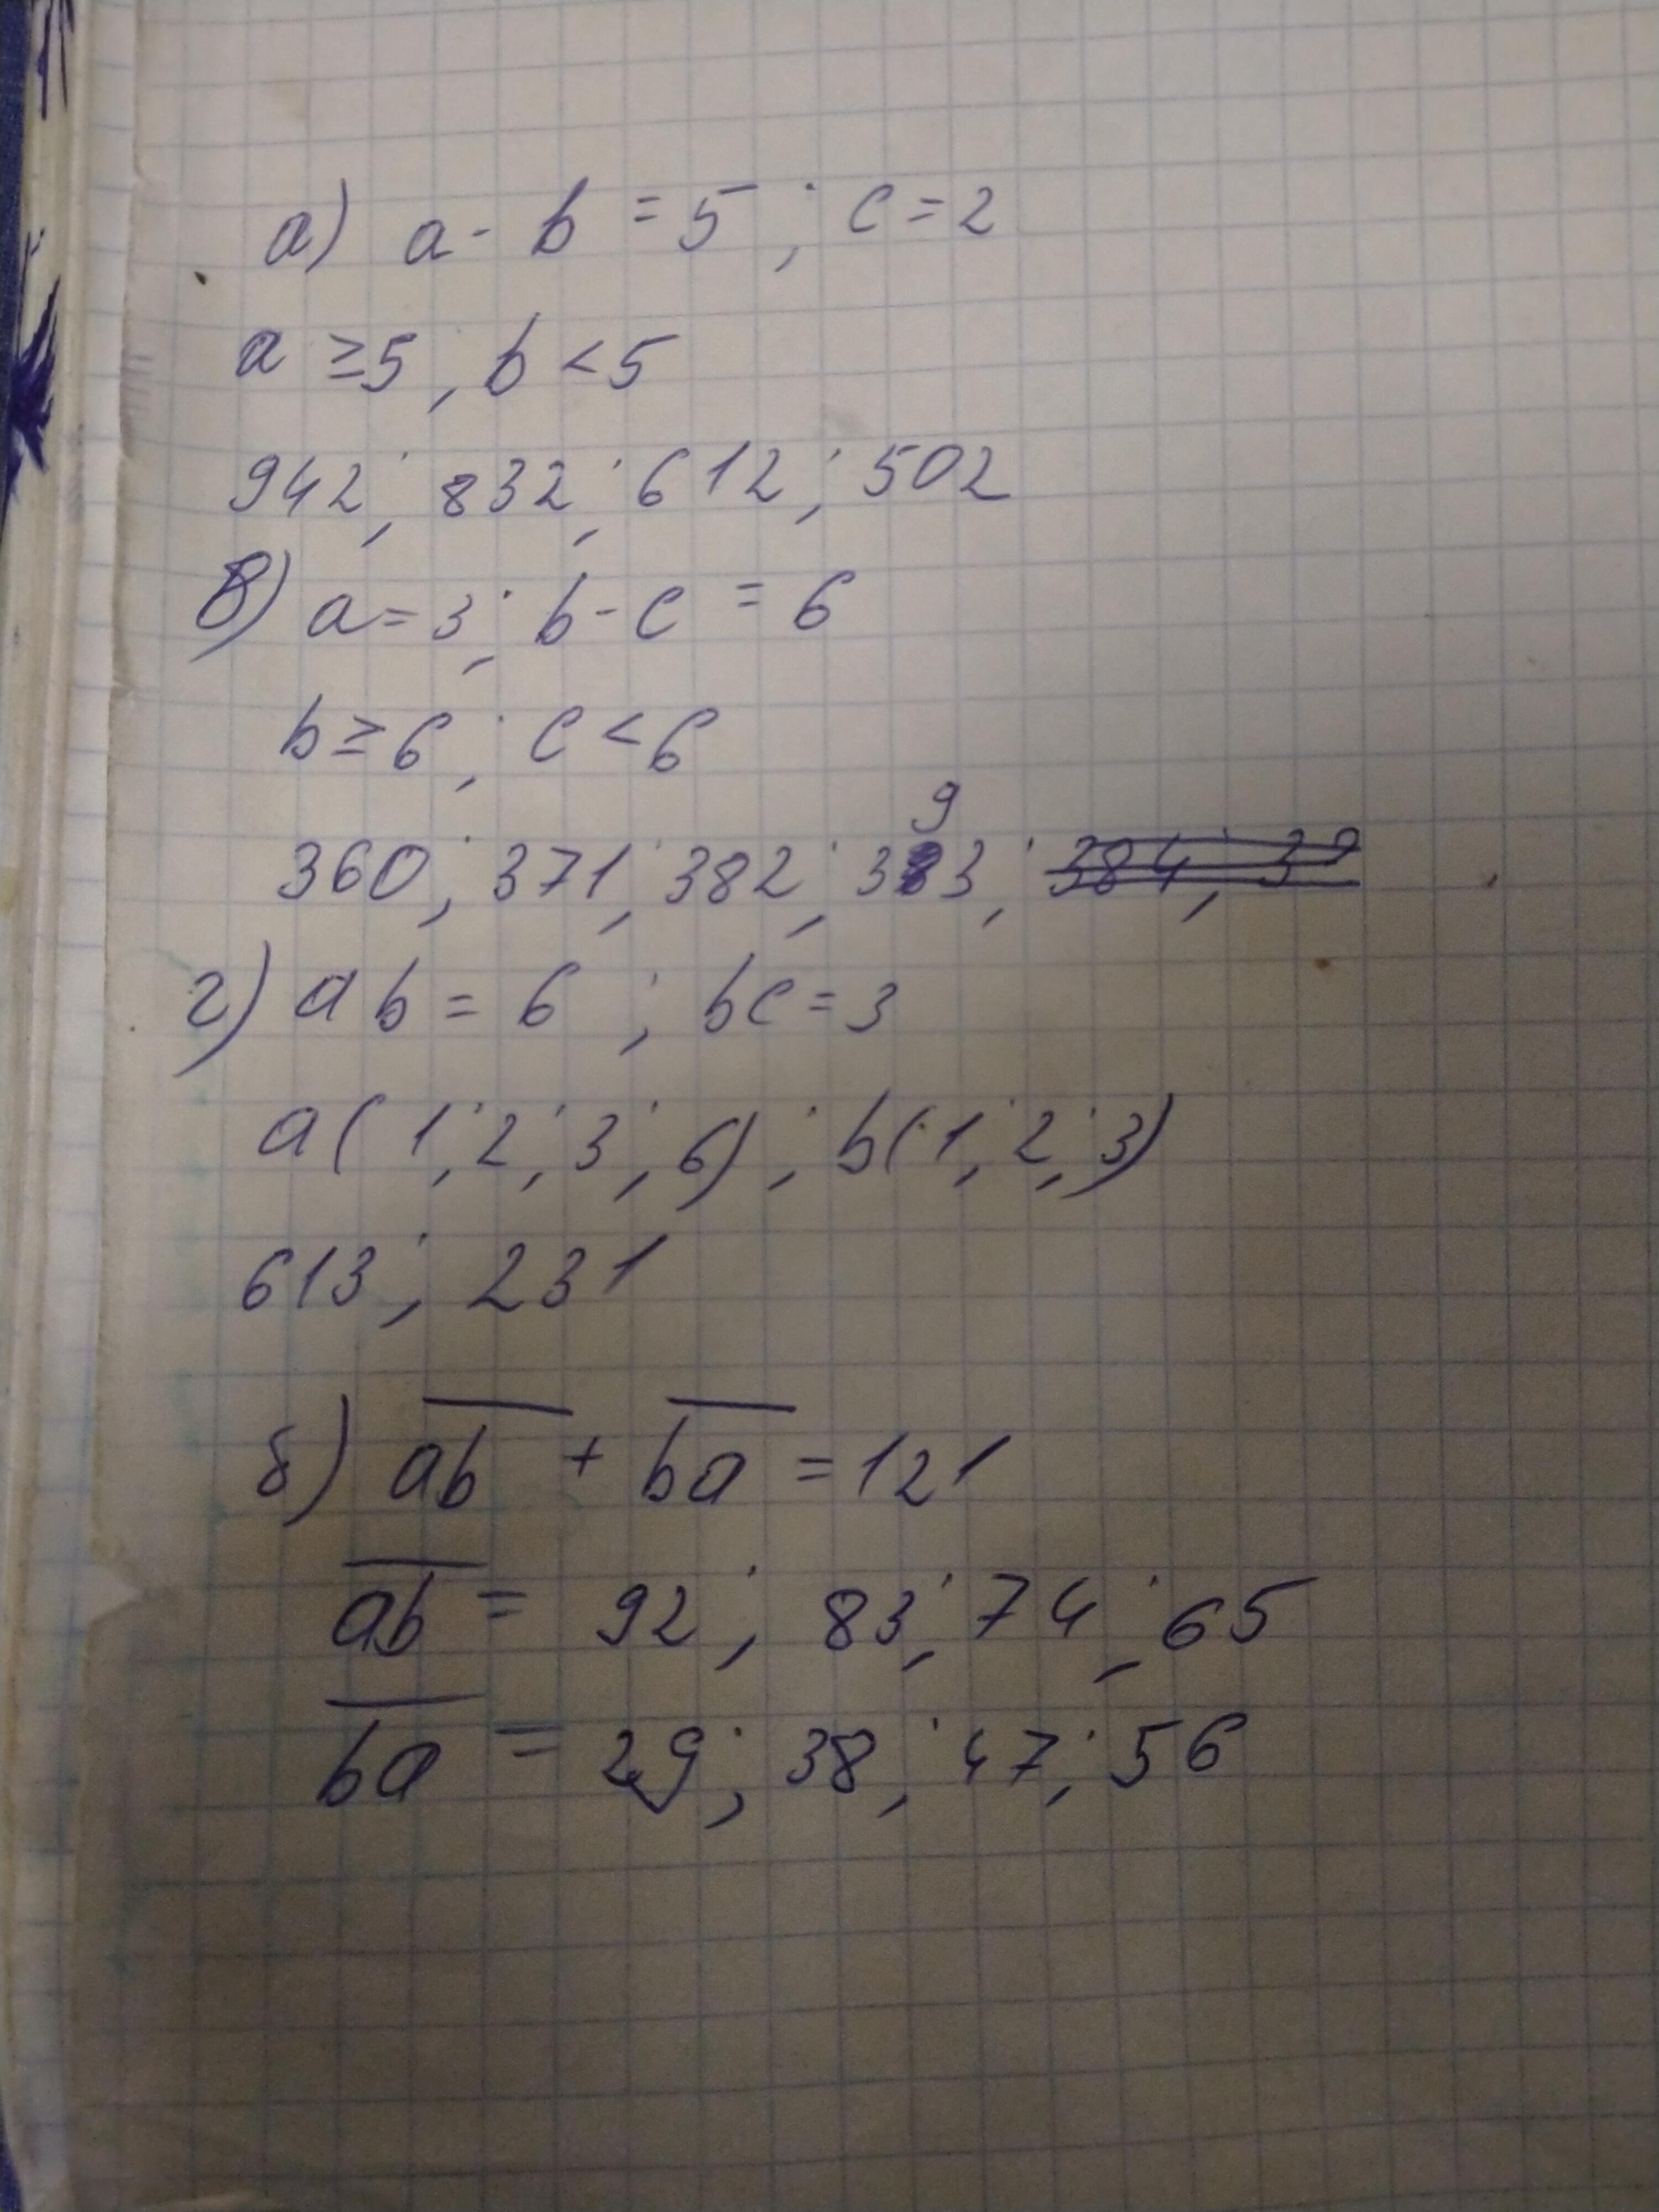 а) a - b = 5 ; c = 2
a ≥ 5 , b < 5
942 ; 832 ; 612 ; 502
в) a = 3 ; b - c = 6
b ≥ 6 ; c < 6
9
360 ; 371 ; 382 ; 383 ; 384 ; 39
г) ab = 6 ; bc = 3
a ( 1 ; 2 ; 3 ; 6 ) ; b ( 1 ; 2 ; 3 )
613 ; 231
б) a̅b̅ + b̅a̅ = 121
a̅b̅ = 92 ; 83 ; 74 ; 65
b̅a̅ = 29 ; 38 ; 47 ; 56